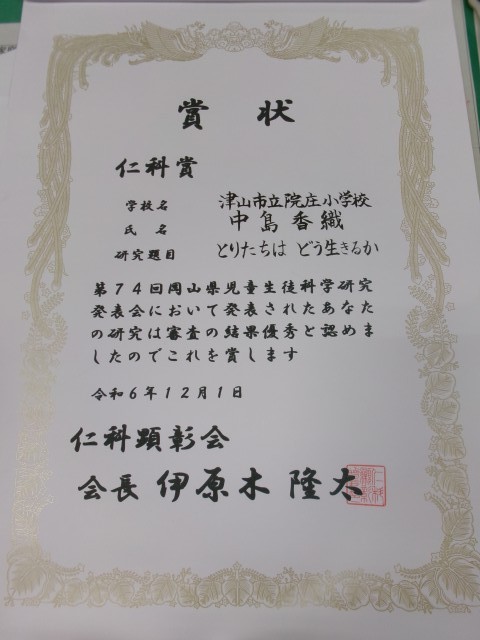 賞 状
仁科賞
学校名 津山市立院庄小学校
氏 名 中島香織
研究題目 とりたちは どう生きるか
第74回岡山県児童生徒科学研究
発表会において発表されたあなた
の研究は審査の結果優秀と認めま
したのでこれを賞します
令和6年12月1日
仁科顕彰会
会長 伊原木 隆太